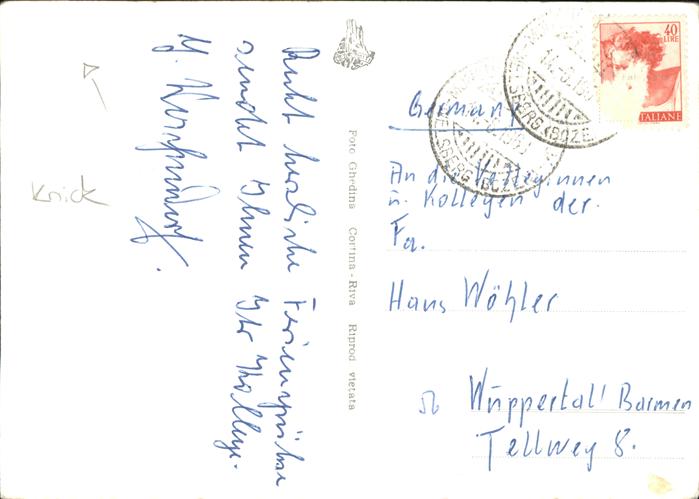 Recht herzliche Feriengrüße
sendet Ihnen Ihr Kollege.
Knick
Foto Ghedina Cortina - Riva Riprod vietata
40
LIRE
ITALIANE
Germany
An die Kolleginnen
u. Kollegen der.
Fa.
Hans Wöhler
56 Wuppertal' Barmen
Tellweg 8.